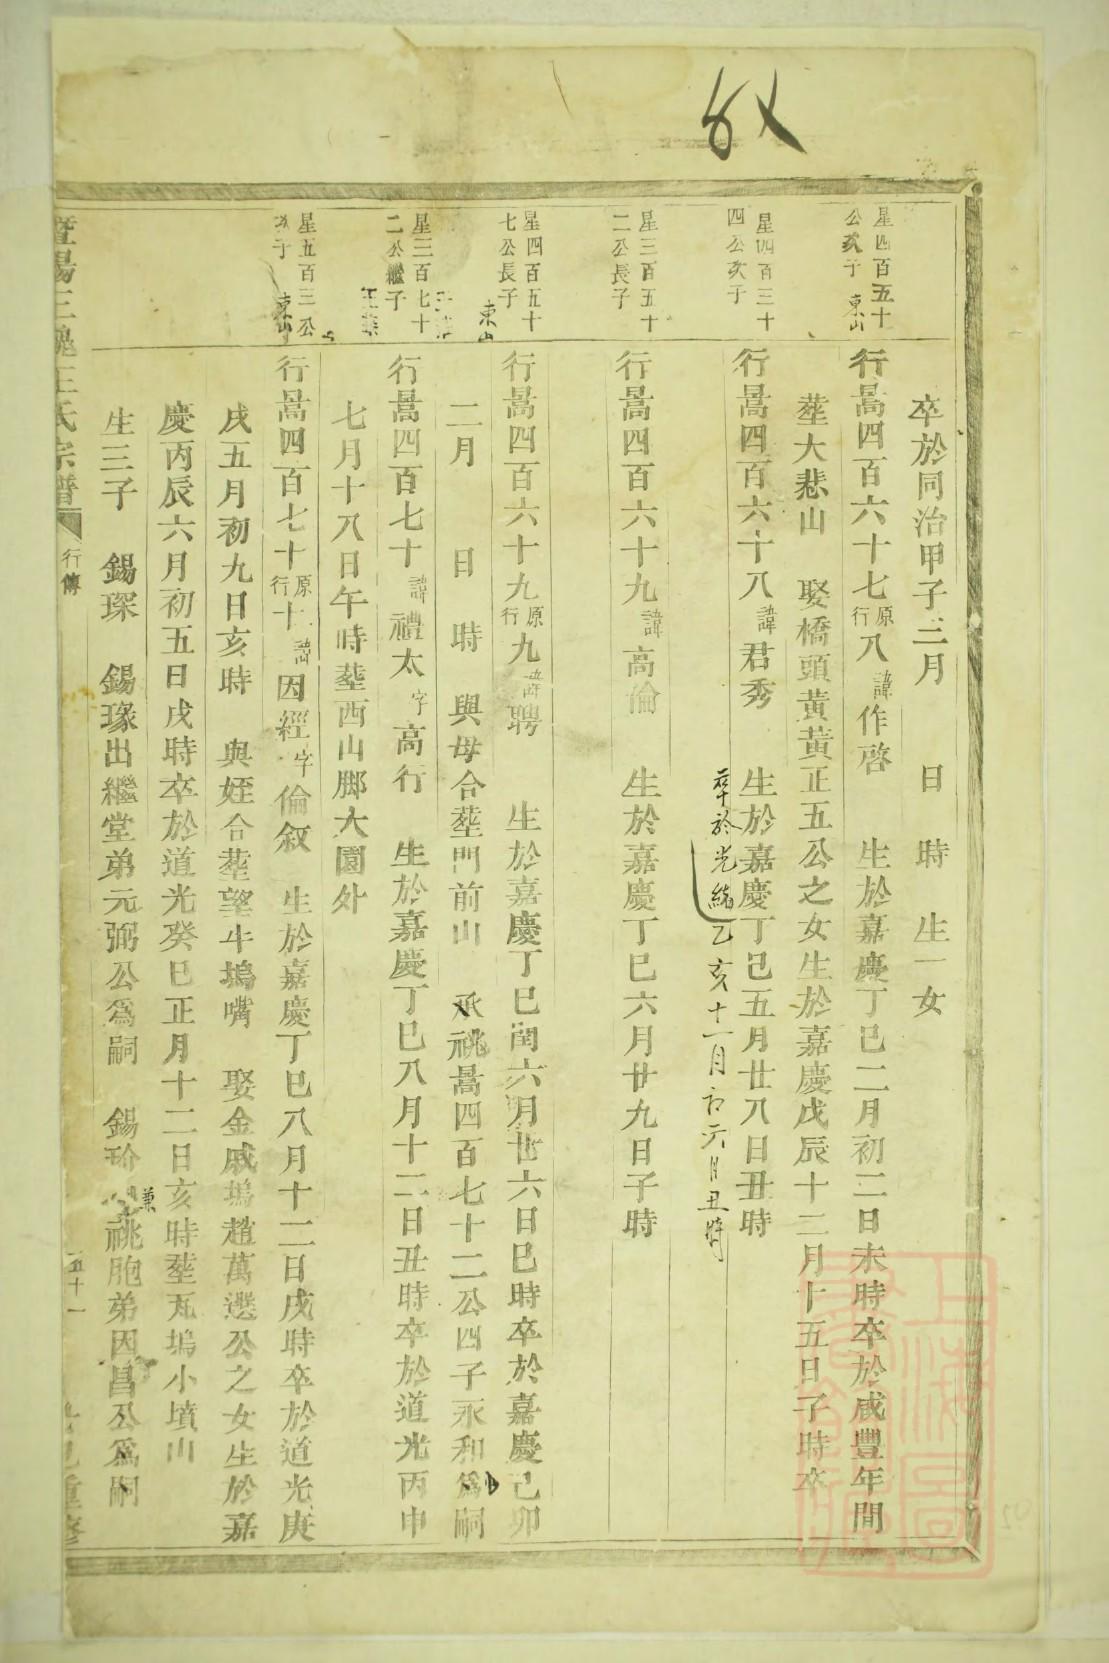 卒於同治甲子三月 日 時 生一女
星四百五十
公亥子 東山
行暠四百六十七原行八諱作啓 生於嘉慶丁巳二月初二日未時卒於咸豐年間
葬大悲山 娶橋頭黃黃正五公之女生於嘉慶戊辰十二月十五日子時卒
星四百三十
四公亥子
行暠四百六十八諱君秀 生於嘉慶丁巳五月廿八日丑時
卒於光緒乙亥十一月初六日丑時
星三百五十
二公長子
行暠四百六十九諱高倫 生於嘉慶丁巳六月廿九日子時
星四百五十
七公長子 東山
行暠四百六十九原行九諱聘 生於嘉慶丁巳閏六月廿六日巳時卒於嘉慶己卯
二月 日 時 與母合塟門前山 承祧暠四百七十二公四子永和爲嗣
星三百七十
二公繼子
行暠四百七十諱禮太字高行 生於嘉慶丁巳八月十二日丑時卒於道光丙申
七月十八日午時塟西山脚大園外
星五百三公
次子 東山
行暠四百七十原行十諱因經字倫叙 生於嘉慶丁巳八月十二日戌時卒於道光庚
戌五月初九日亥時 與姪合塟望牛塢嘴 娶金戚塢趙萬選公之女生於嘉
慶丙辰六月初五日戌時卒於道光癸巳正月十二日亥時塟瓦塢小墳山
生三子 錫琛 錫瑑出繼堂弟元弼公爲嗣 錫玠兼祧胞弟因昌公爲嗣
暨陽三槐王氏宗譜 行傳 五十一 重修